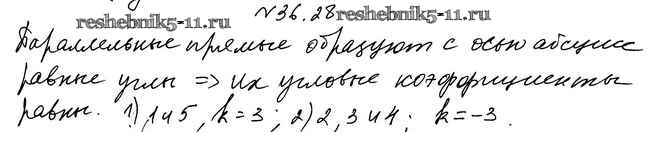 reshebnik5-11.ru №36.28 reshebnik5-11.ru
Параллельные прямые образуют с осью абсцисс
равные углы => их угловые коэффициенты
равны. 1) 1 и 5, k = 3; 2) 2, 3 и 4; k = -3.